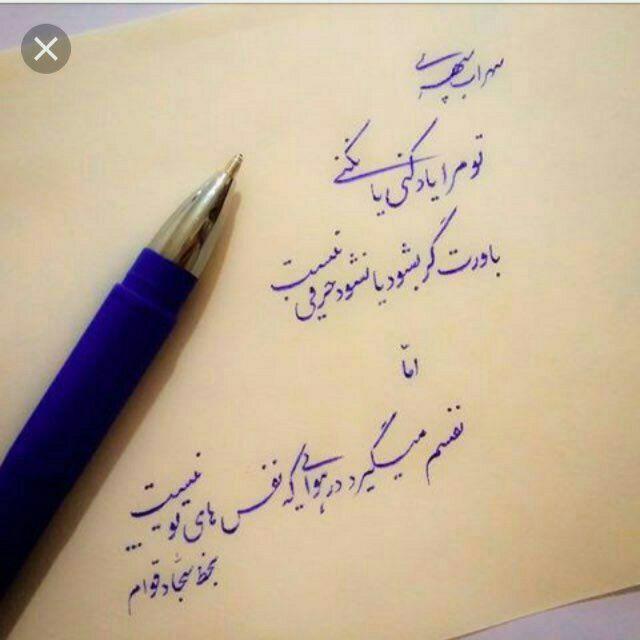 سهراب سپهری
تو مرا یاد کنی یا نکنی
باورت گر بشود یا نشود حرفی نیست
امّا
نفسم میگیرد در هوایی که نفس های تو نیست...
بخط سجّاد قوام